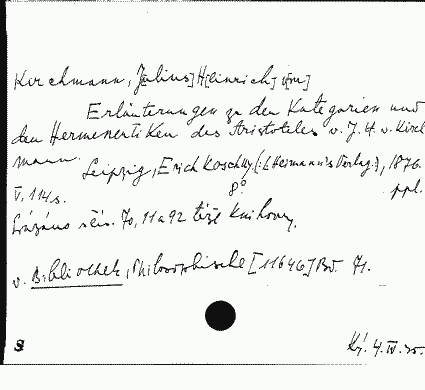 Kirchmann, J[ulius] H[einrich] v[on]
Erläuterungen zu den Kategorien und
den Hermeneutiken des Aristoteles v. J. H. v. Kirch
mann.
Leipzig, Erich Koschny (:L. Heimann's Verlag:), 1876.
V, 114 s. 8° ppl.
Svázáno s čís. 70, 11 a 92 téže knihovny.
v. Bibliothek, Philosophische [11646] Bd. 71.
S Kř. 4. IV. 50.